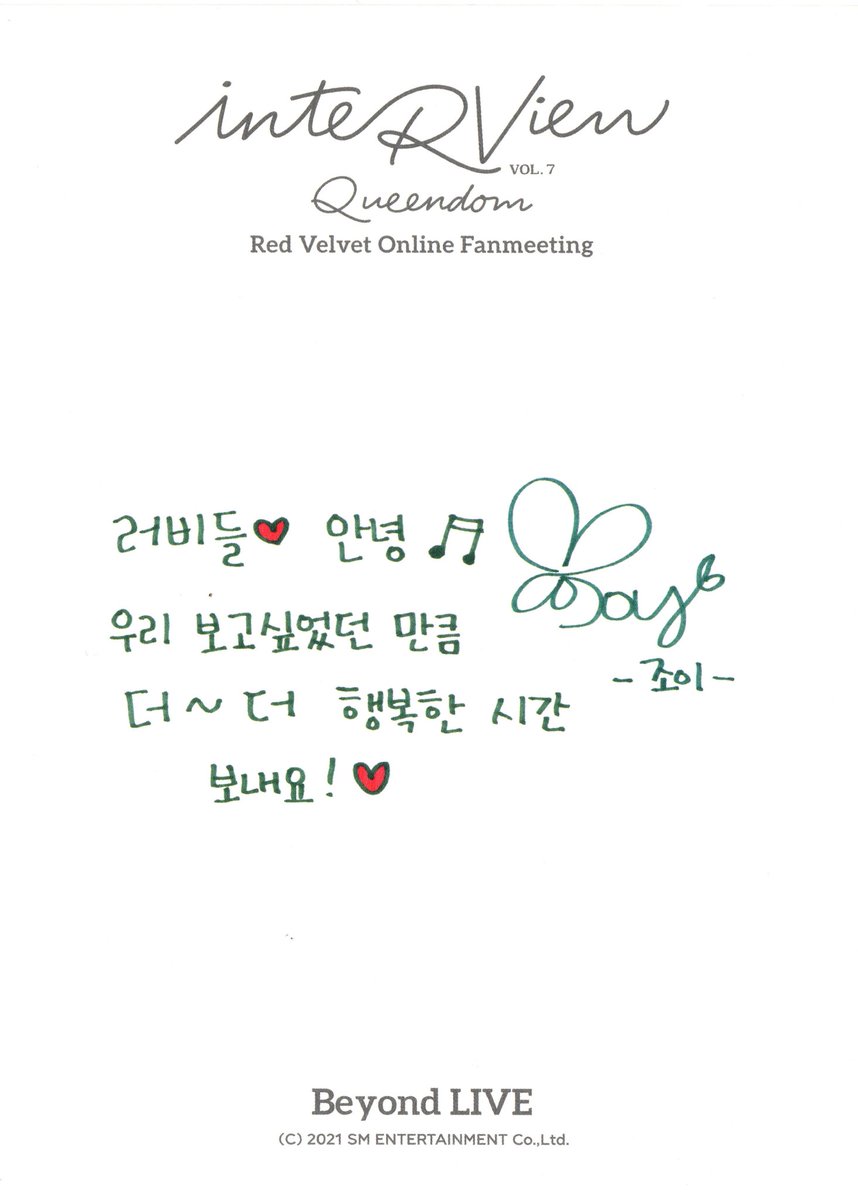 inteRView
VOL. 7
Queendom
Red Velvet Online Fanmeeting
러비들♥ 안녕 ♬
우리 보고싶었던 만큼
더~더 행복한 시간
보내요! ♥
-조이-
Beyond LIVE
(C) 2021 SM ENTERTAINMENT Co.,Ltd.